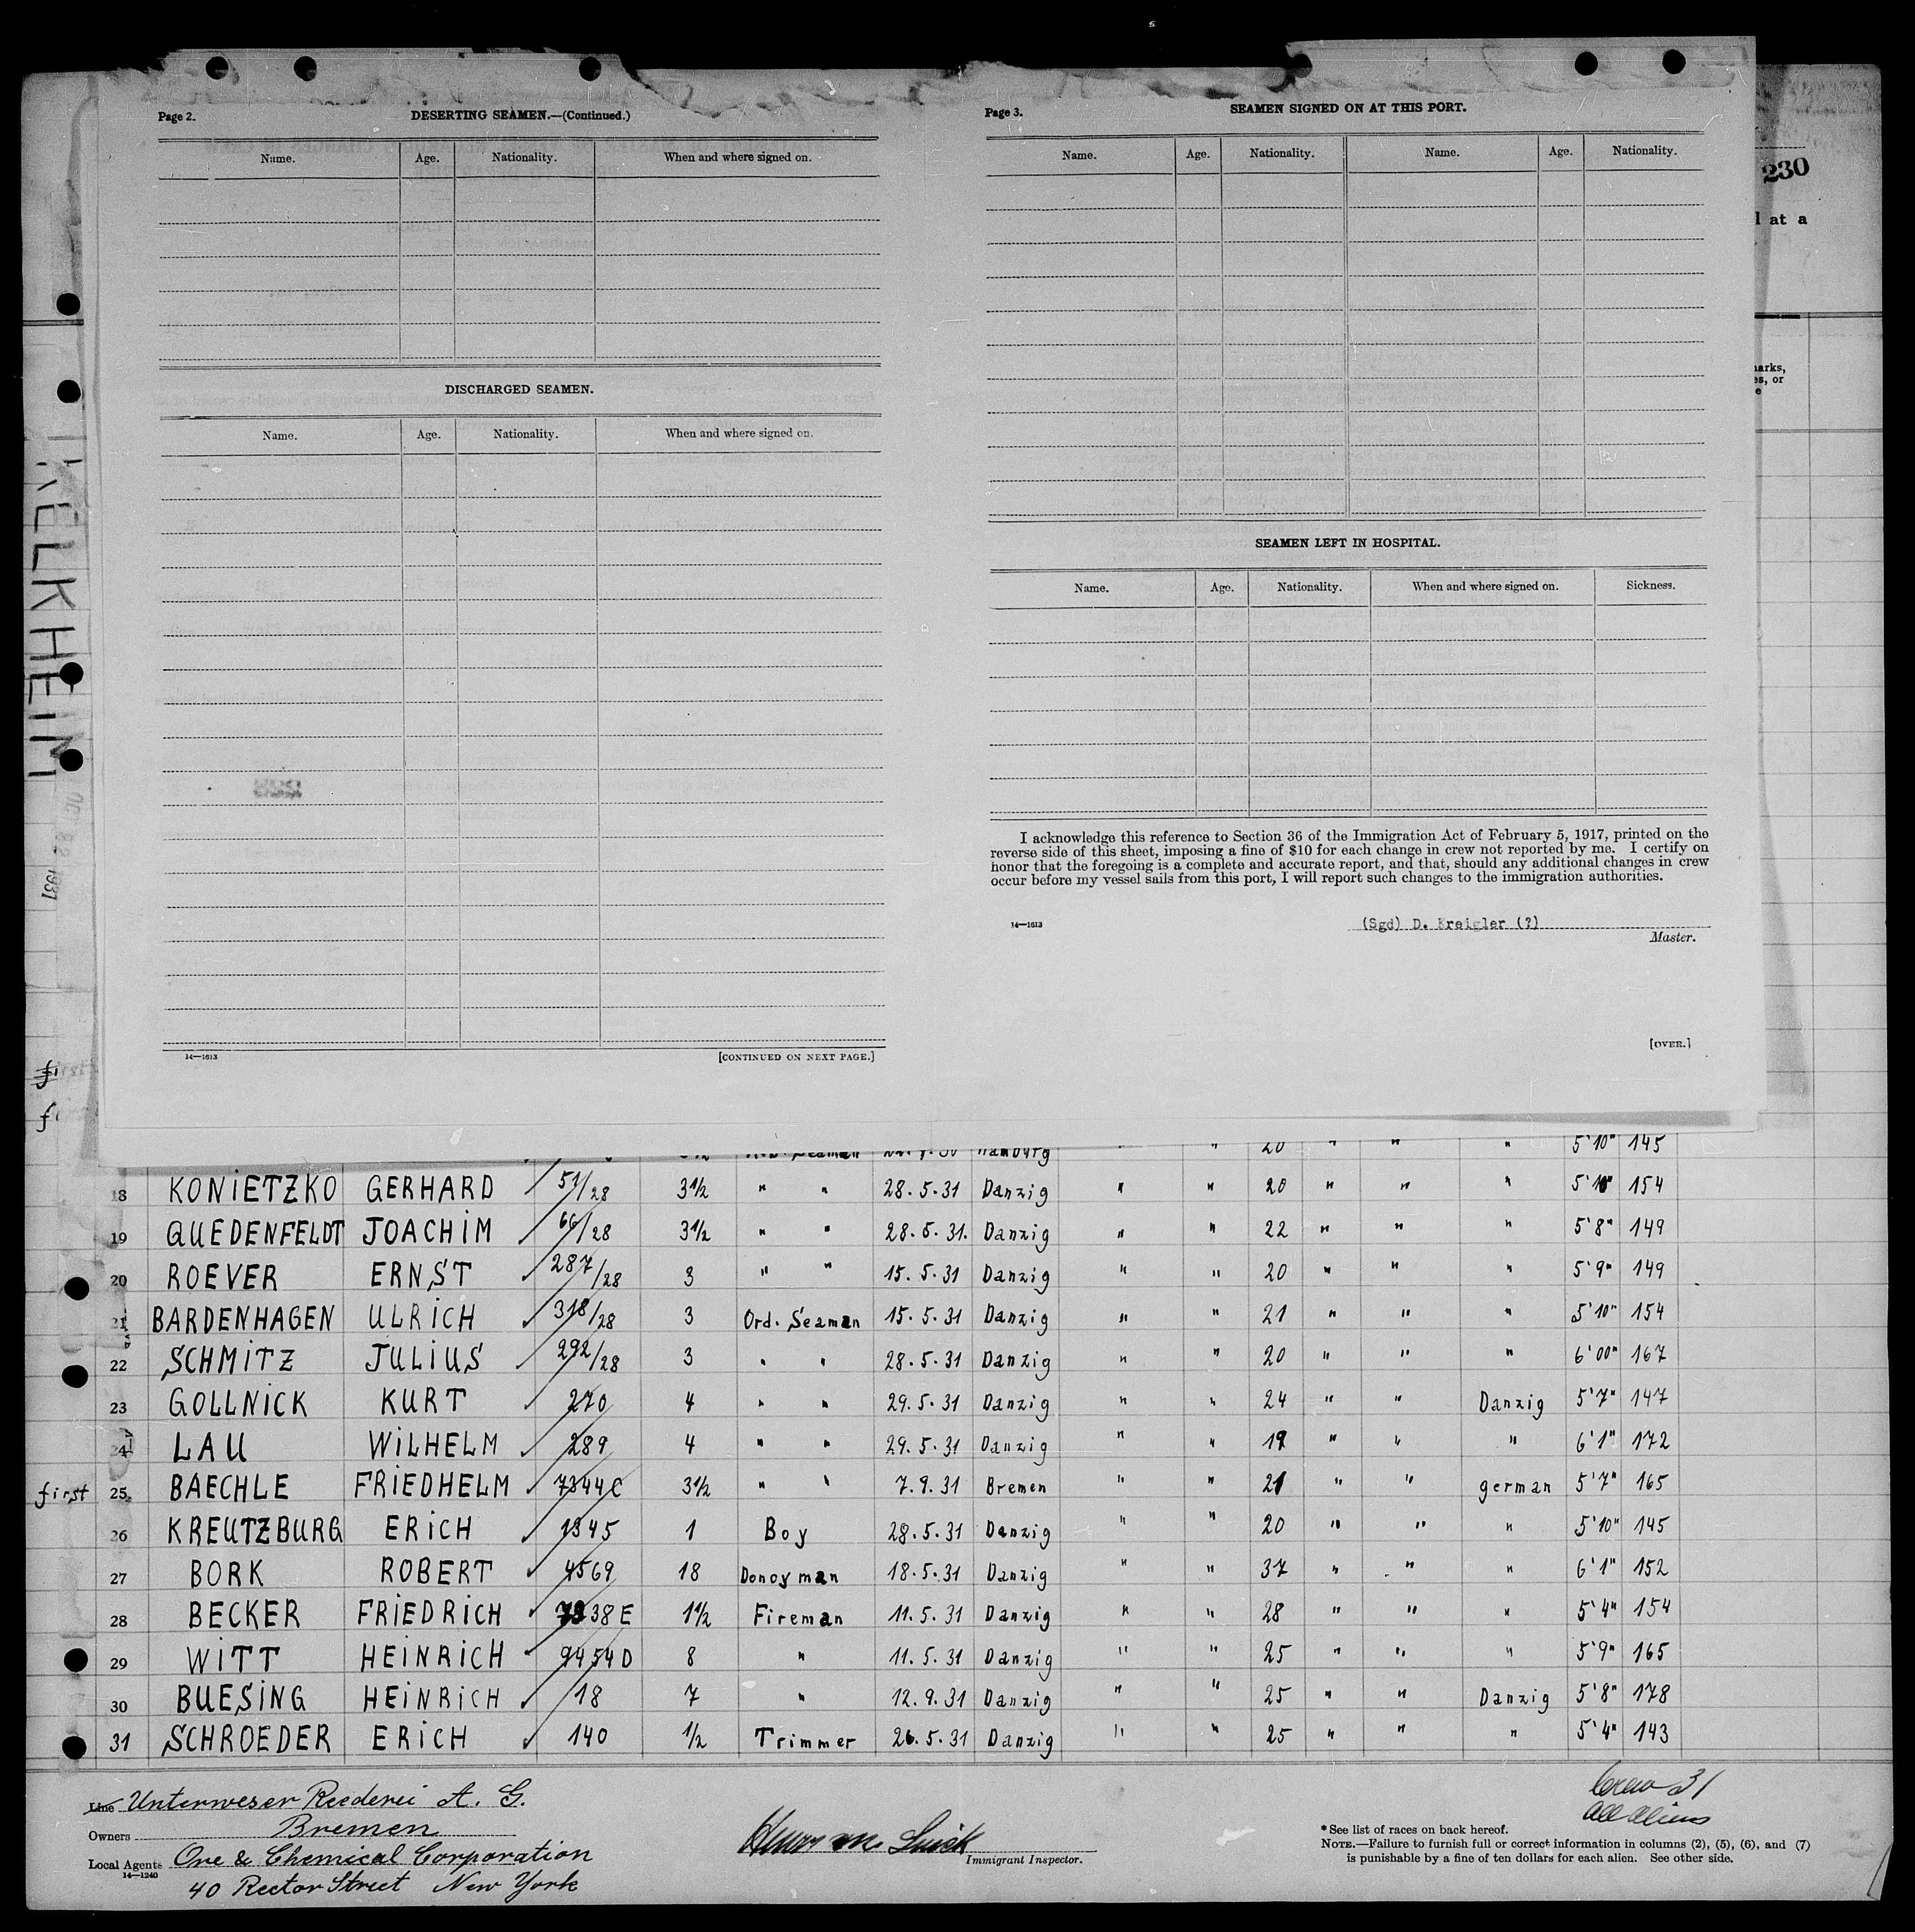 230
l at a
Page 2.
DESERTING SEAMEN.—(Continued.)
Name. Age. Nationality. When and where signed on.
DISCHARGED SEAMEN.
Name. Age. Nationality. When and where signed on.
14—1613 [CONTINUED ON NEXT PAGE.]
Page 3.
SEAMEN SIGNED ON AT THIS PORT.
Name. Age. Nationality. Name. Age. Nationality.
SEAMEN LEFT IN HOSPITAL.
Name. Age. Nationality. When and where signed on. Sickness.
I acknowledge this reference to Section 36 of the Immigration Act of February 5, 1917, printed on the
reverse side of this sheet, imposing a fine of $10 for each change in crew not reported by me. I certify on
honor that the foregoing is a complete and accurate report, and that, should any additional changes in crew
occur before my vessel sails from this port, I will report such changes to the immigration authorities.
14—1613 (Sgd) D. Kreigler (?)
Master.
[OVER.]
KELKHEIM
1931
Seamen Hamburg " " 20 " " " 5'10" 145
18 KONIETZKO GERHARD 51/28 3½ " " 28.5.31 Danzig " " 20 " " " 5'10" 154
19 QUEDENFELDT JOACHIM 66/28 3½ " " 28.5.31. Danzig " " 22 " " " 5'8" 149
20 ROEVER ERNST 287/28 3 " " 15.5.31 Danzig " " 20 " " " 5'9" 149
21 BARDENHAGEN ULRICH 318/28 3 Ord. Seaman 15.5.31 Danzig " " 21 " " " 5'10" 154
22 SCHMITZ JULIUS 292/28 3 " " 28.5.31 Danzig " " 20 " " " 6'00" 167
23 GOLLNICK KURT 270 4 " " 29.5.31 Danzig " " 24 " " Danzig 5'7" 147
24 LAU WILHELM 289 4 " " 29.5.31 Danzig " " 19 " " " 6'1" 172
first 25 BAECHLE FRIEDHELM 7344C 3½ " " 7.9.31 Bremen " " 21 " " german 5'7" 165
26 KREUTZBURG ERICH 1345 1 Boy 28.5.31 Danzig " " 20 " " " 5'10" 145
27 BORK ROBERT 4569 18 Donoyman 18.5.31 Danzig " " 37 " " " 6'1" 152
28 BECKER FRIEDRICH 7338E 1½ Fireman 11.5.31 Danzig " " 28 " " " 5'4" 154
29 WITT HEINRICH 9454D 8 " 11.5.31 Danzig " " 25 " " " 5'9" 165
30 BUESING HEINRICH 18 7 " 12.9.31 Danzig " " 25 " " Danzig 5'8" 178
31 SCHROEDER ERICH 140 ½ Trimmer 26.5.31 Danzig " " 25 " " " 5'4" 143
Line Unterweser Reederei A. G.
Owners Bremen
Local Agents Ore & Chemical Corporation
14—1240
40 Rector Street New York
Immigrant Inspector.
Crew 31
all aliens
*See list of races on back hereof.
NOTE.—Failure to furnish full or correct information in columns (2), (5), (6), and (7)
is punishable by a fine of ten dollars for each alien. See other side.